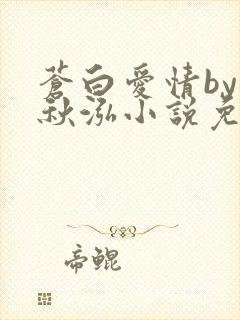 蒼白愛情by
秋泓小說免
帝鯤